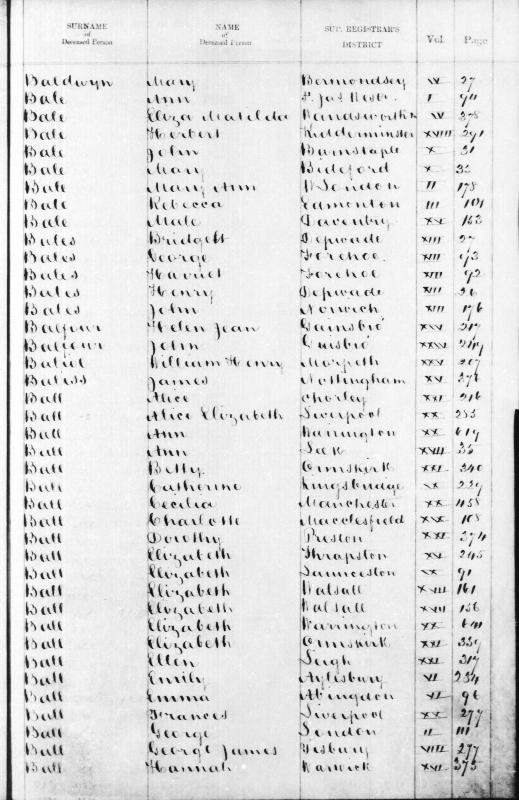 SURNAME of Deceased Person NAME of Deceased Person SUP. REGISTRAR'S DISTRICT Vol. Page
Baldwyn Mary Bermondsey IV 27
Bale Ann St. Jas Westr. I 94
Bale Eliza Matilda Wandsworth IV 278
Bale Herbert Kidderminster XVIII 391
Bale John Barnstaple X 31
Bale Mary Bideford X 33
Bale Mary Ann W London II 178
Bale Rebecca Edmonton III 101
Bale Male Daventry XV 153
Bales Bridgett Depwade XIII 27
Bales George Forehoe XIII 93
Bales Harriet Forehoe XIII 92
Bales Henry Depwade XIII 26
Bales John Norwich XIII 176
Balfour Helen Jean Gainsbro XIV 317
Balfour John Guisbro XXIV 249
Baliol William Henry Morpeth XXV 207
Baliss James Nottingham XV 376
Ball Alice Chorley XXI 216
Ball Alice Elizabeth Liverpool XX 255
Ball Ann Warrington XX 619
Ball Ann Leek XVII 35
Ball Betty Ormskirk XXI 340
Ball Catherine Kingsbridge IX 239
Ball Cecilia Manchester XX 458
Ball Charlotte Macclesfield XIX 108
Ball Dorothy Preston XXI 394
Ball Elizabeth Thrapston XV 245
Ball Elizabeth Launceston IX 91
Ball Elizabeth Walsall XVII 161
Ball Elizabeth Walsall XVII 156
Ball Elizabeth Warrington XX
Ball Elizabeth Ormskirk XXI 339
Ball Ellen Leigh XXI 317
Ball Emily Aylesbury VI 234
Ball Emma Abingdon VI 96
Ball Frances Liverpool XX 277
Ball George London II 111
Ball George James Tisbury VIII 277
Ball Hannah Warwick XVI 375